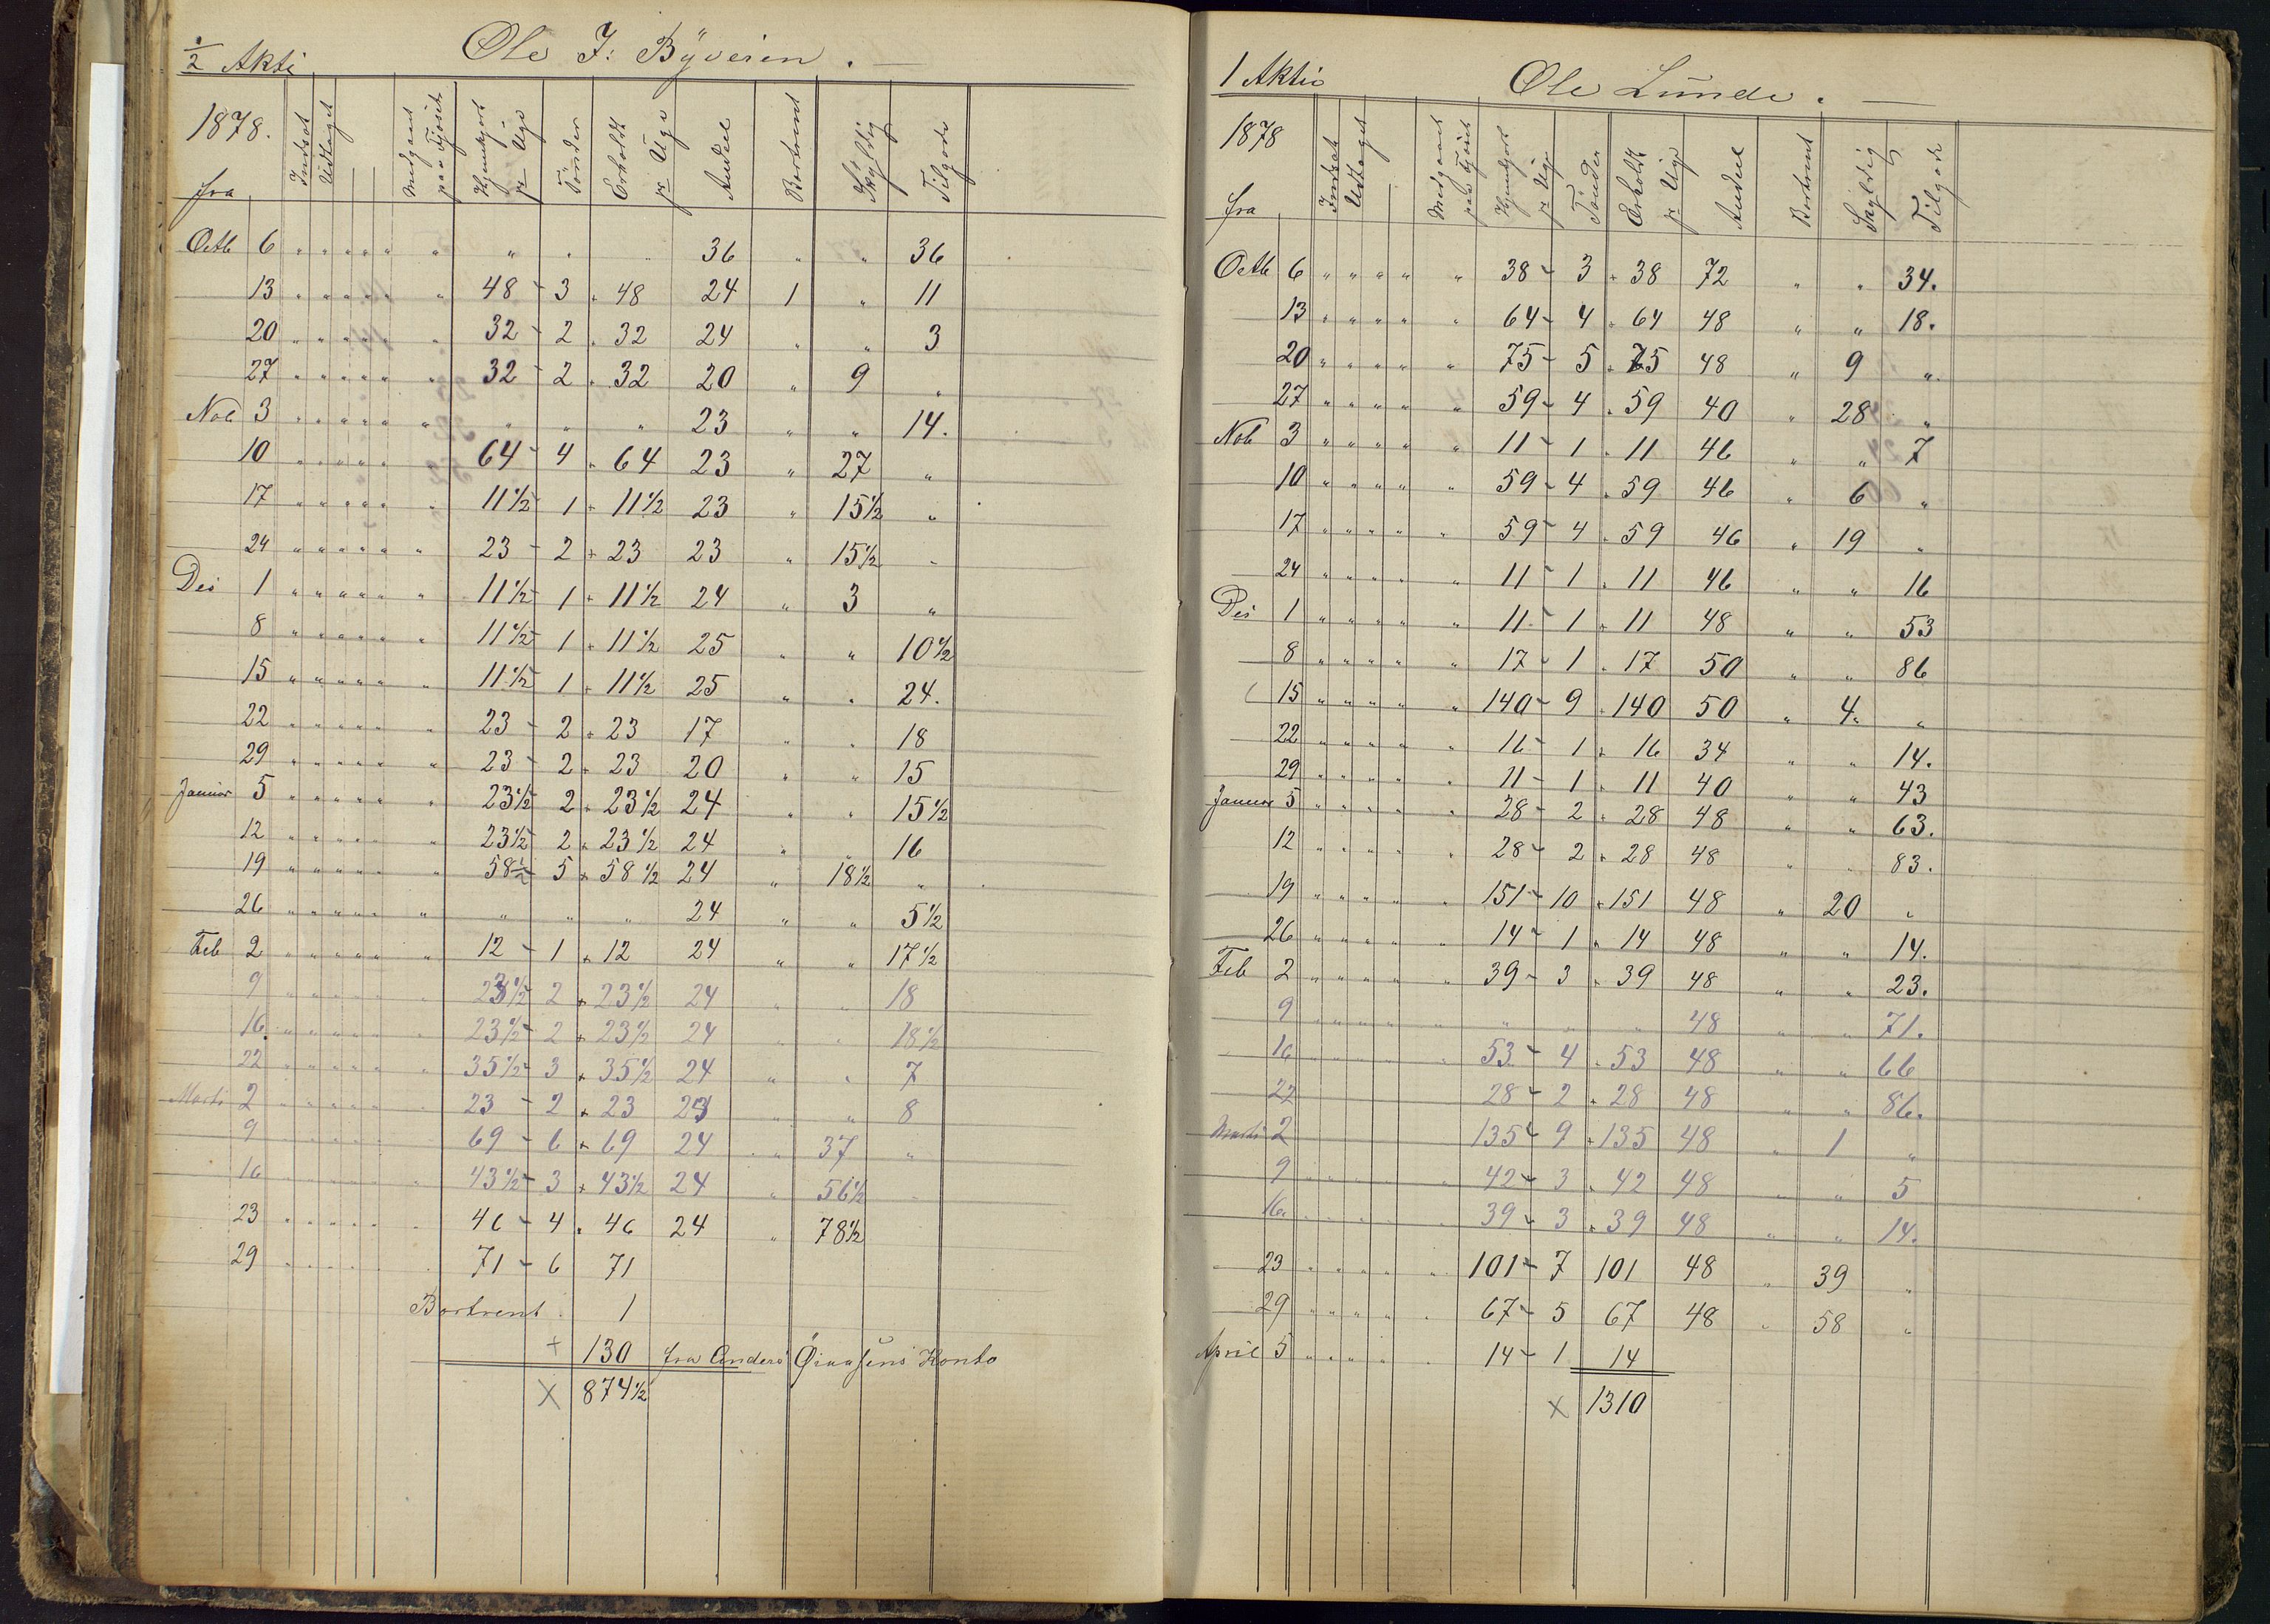 1/2 Aktie Ole J: Byveien . —
1878. fra Indsat Udtaget Medgaaet paa Fjöset Hjemkjört pr Uge Tönder Erholdt pr Uge Andeel Bortrent Skyldig Tilgode
Octb 6 " " " " " " " " " 36 " " 36
13 " " " " " " 48 - 3 " 48 24 1 " 11
20 " " " " " " 32 - 2 " 32 24 " " 3
27 " " " " " " 32 - 2 " 32 20 " 9 "
Nob 3 " " " " " " " " " 23 " " 14.
10 " " " " " " 64 - 4 " 64 23 " 27 "
17 " " " " " " 11 1/2 - 1 " 11 1/2 23 " 15 1/2 "
24 " " " " " " 23 - 2 " 23 23 " 15 1/2 "
Des 1 " " " " " " 11 1/2 - 1 " 11 1/2 24 " 3 "
8 " " " " " " 11 1/2 - 1 " 11 1/2 25 " " 10 1/2
15 " " " " " " 11 1/2 - 1 " 11 1/2 25 " " 24.
22 " " " " " " 23 - 2 " 23 17 " " 18
29 " " " " " " 23 - 2 " 23 20 " " 15
Januar 5 " " " " " " 23 1/2 2 " 23 1/2 24 " " 15 1/2
12 " " " " " " 23 1/2 2 " 23 1/2 24 " " 16
19 " " " " " " 58 1/2 - 5 " 58 1/2 24 " 18 1/2 "
26 " " " " " " " " " 24 " " 5 1/2
Feb 2 " " " " " " 12 - 1 " 12 24 " " 17 1/2
9 " " " " " " 23 1/2 - 2 " 23 1/2 24 " " 18
16 " " " " " " 23 1/2 - 2 " 23 1/2 24 " " 18 1/2
22 " " " " " " 35 1/2 - 3 " 35 1/2 24 " " 7
Marts 2 " " " " " " 23 - 2 " 23 24 " " 8
9 " " " " " " 69 - 6 " 69 24 " 37 "
16 " " " " " " 43 1/2 - 3 " 43 1/2 24 " 56 1/2 "
23 " " " " " " 46 - 4 " 46 24 " 78 1/2
29 " " " " " " 71 - 6 71
Bortrent 1
+ 130 fra Anders Konto
X 874 1/2
1 Aktie Ole Lunde . —
1878 fra Indsat Udtaget Medgaaet paa Fjöset Hjemkjört pr Uge Tönder Erholdt pr Uge Andeel Bortrent Skyldig Tilgode
Octb 6 " " " " " 38 - 3 " 38 72 " " 34.
13 " " " " " 64 - 4 " 64 48 " " 18.
20 " " " " " 75 - 5 " 75 48 " 9 "
27 " " " " " 59 - 4 " 59 40 " 28 "
Nob 3 " " " " " 11 - 1 " 11 46 " " 7
10 " " " " " 59 - 4 " 59 46 " 6 "
17 " " " " " 59 - 4 " 59 46 " 19 "
24 " " " " " 11 - 1 " 11 46 " " 16
Des 1 " " " " " 11 - 1 " 11 48 " " 53
8 " " " " " 17 - 1 " 17 50 " " 86
15 " " " " " 140 - 9 " 140 50 " 4 "
22 " " " " " 16 - 1 " 16 34 " " 14.
29 " " " " " 11 - 1 " 11 40 " " 43
Januar 5 " " " " " 28 - 2 " 28 48 " " 63.
12 " " " " " 28 - 2 " 28 48 " " 83.
19 " " " " " 151 - 10 " 151 48 " 20 "
26 " " " " " 14 - 1 " 14 48 " " 14.
Feb 2 " " " " " 39 - 3 " 39 48 " " 23.
9 " " " " " " " " 48 " " 71.
16 " " " " " 53 - 4 " 53 48 " " 66
22 28 - 2 " 28 48 " " 86.
Marts 2 135 - 9 " 135 48 " 1 "
9 " " " " " 42 - 3 " 42 48 " " 5
16. " " " " " 39 - 3 " 39 48 " " 14.
23 " " " " " 101 - 7 101 48 " 39 "
29 " " " " " 67 - 5 67 48 " 58 "
April 5 " " " " " 14 - 1 14
X 1310